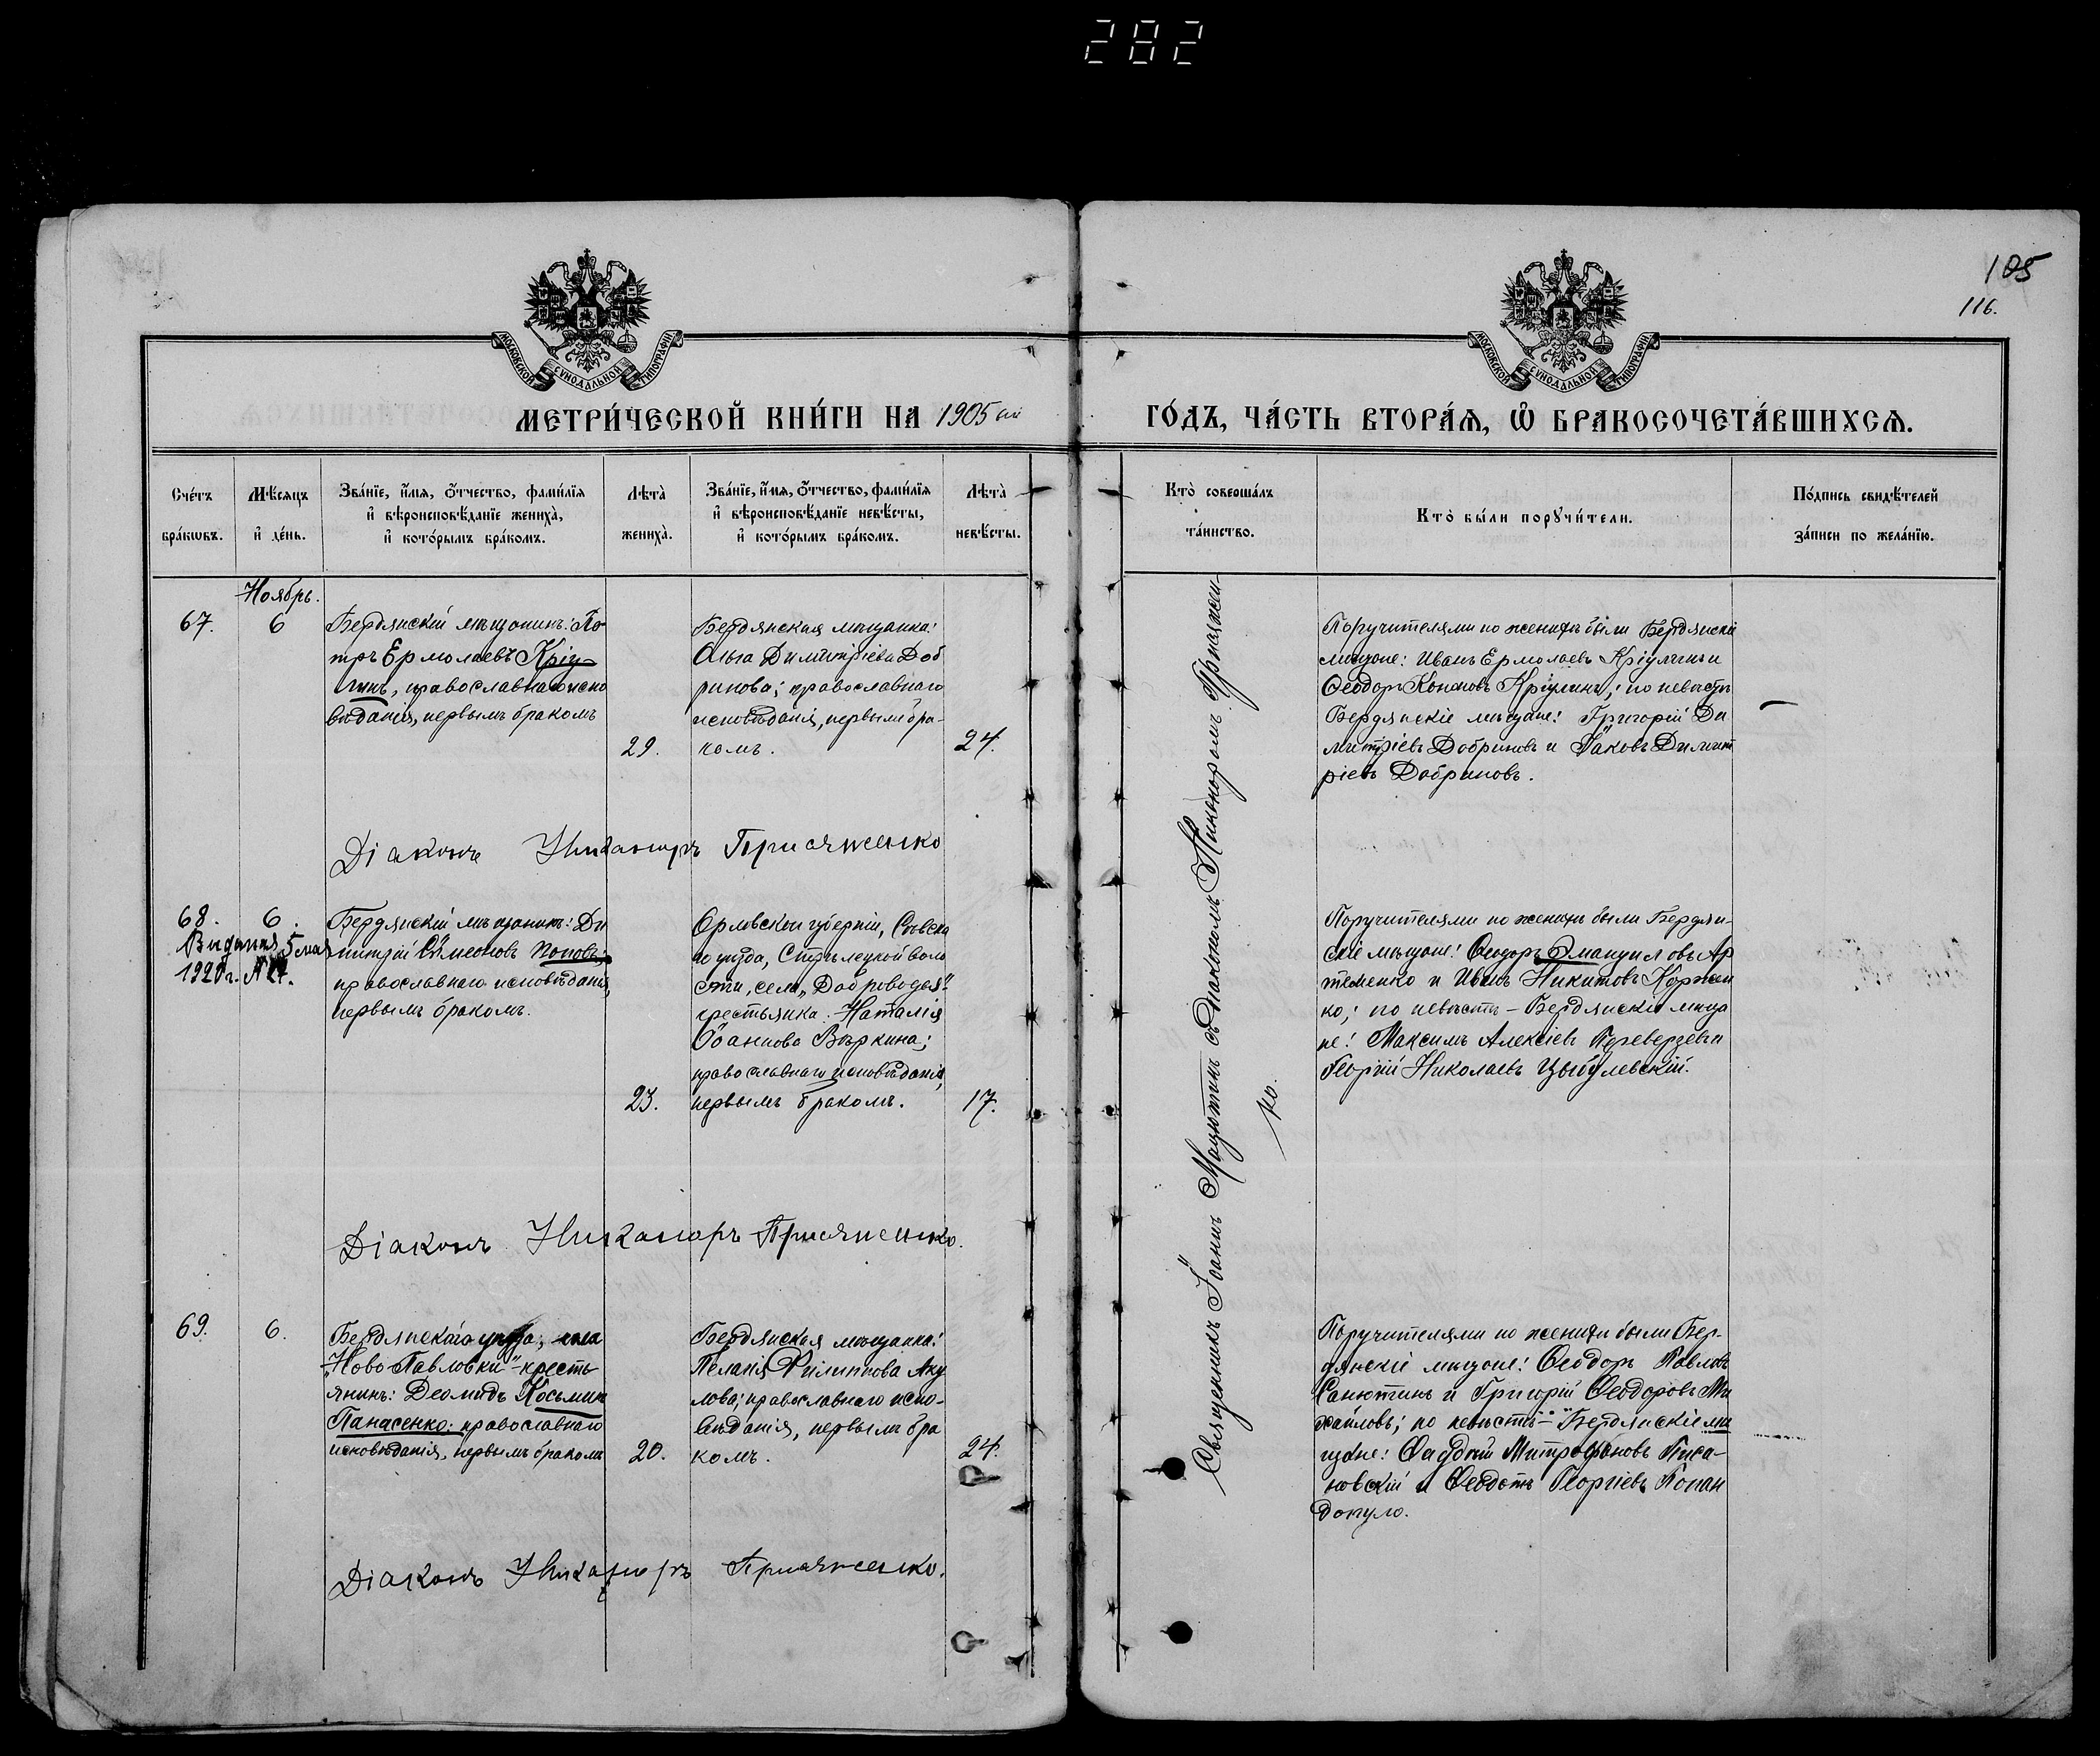 282
105
116.
МОСКОВСКОЙ СУНОДАЛЬНОЙ ТИПОГРАФІИ
МОСКОВСКОЙ СУНОДАЛЬНОЙ ТИПОГРАФІИ
МЕТРИ́ЧЕСКОЙ КНИ́ГИ НА 1905 ый ГО́ДЪ, ЧА́СТЬ ВТОРА́Ѧ, Ѽ БРАКОСОЧЕТА́ВШИХСѦ.
Сче́тъ
бра́кѡвъ.
Мѣ́сѧцъ
и҆ де́нь.
Зва́нїе, и҆́мѧ, ѻ҆́тчество, фами́лїѧ
и҆ вѣроисповѣ́данїе жениха̀,
и҆ кото́рымъ бра́комъ.
Лѣта̀
жениха̀.
Зва́нїе, и҆́мѧ, ѻ҆́тчество, фами́лїѧ
и҆ вѣроисповѣ́данїе невѣ́сты,
и҆ кото́рымъ бра́комъ.
Лѣта̀
невѣ́сты.
Кто̀ соверша́лъ
та́инство.
Кто̀ бы́ли порꙋчи́тели.
По́дпись свидѣ́телей
за́писи по жела́нїю.
Ноябрь.
67.
6
Бердянскій мѣщанинъ: Пе
тръ Ермолаевъ Кріу
линъ, православнаго испо
вѣданія, первымъ бракомъ
29.
Бердянская мѣщанка:
Ольга Димитріева Доб
ринова; православнаго
исповѣданія, первымъ бра-
комъ.
24.
Поручителями по женихѣ были Бердянскіе
мѣщане: Иванъ Ермолаевъ Кріулинъ и
Ѳеодоръ Кріулинъ; по невѣстѣ
Бердянскіе мѣщане: Григорій Ди
митріевъ Добриновъ и Іаковъ Димит
ріевъ Добриновъ.
Діаконъ Никаноръ Присяженко
68.
6.
Выдана 5 мая
1920 г. №
Бердянскій мѣщанинъ: Ди
митрій Сѵмеоновъ Поповъ;
православнаго исповѣданія,
первымъ бракомъ.
23.
Орловской губерніи, Сѣвска
го уѣзда, Стрѣлецкой воло
сти, села „Доброводья"
крестьянка: Наталія
Іоаннова Вѣркина;
православнаго исповѣданія,
первымъ бракомъ.
17.
Поручителями по женихѣ были Бердян-
скіе мѣщане: Ѳеодоръ Эмануиловъ Ар
теменко и Иванъ Никитовъ Коржен
ко; по невѣстѣ – Бердянскіе мѣща
не: Максимъ Алексіевъ Переверзевъ и
Георгій Николаевъ Цыбулевскій.
Діаконъ Никаноръ Присяженко.
69.
6.
Бердянскаго уѣзда, села
„Ново-Павловки" – кресть
янинъ: Деомидъ Косьминъ
Панасенко: православнаго
исповѣданія, первымъ бракомъ
20.
Бердянская мѣщанка:
Пелагія Филиппова Аку
лова; православнаго испо-
вѣданія, первымъ бра
комъ.
24.
Поручителями по женихѣ были Бер-
дянскіе мѣщане: Ѳеодоръ Павловъ
Санютинъ и Григорій Ѳеодоровъ Ми
хайловъ; по невѣстѣ – Бердянскіе мѣ
щане: Ѳаддей Митрофановъ Писа-
новскій и Ѳеодотъ Георгіевъ Попан
допуло.
Діаконъ Никаноръ Присяженко.
Священникъ Іоаннъ Мацютинъ съ діакономъ Никаноромъ Присяжен-
ко.